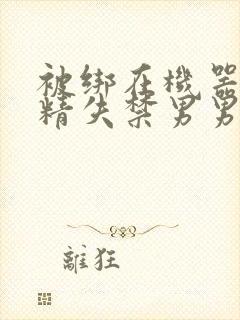 被绑在機器
精失禁男男
離狂